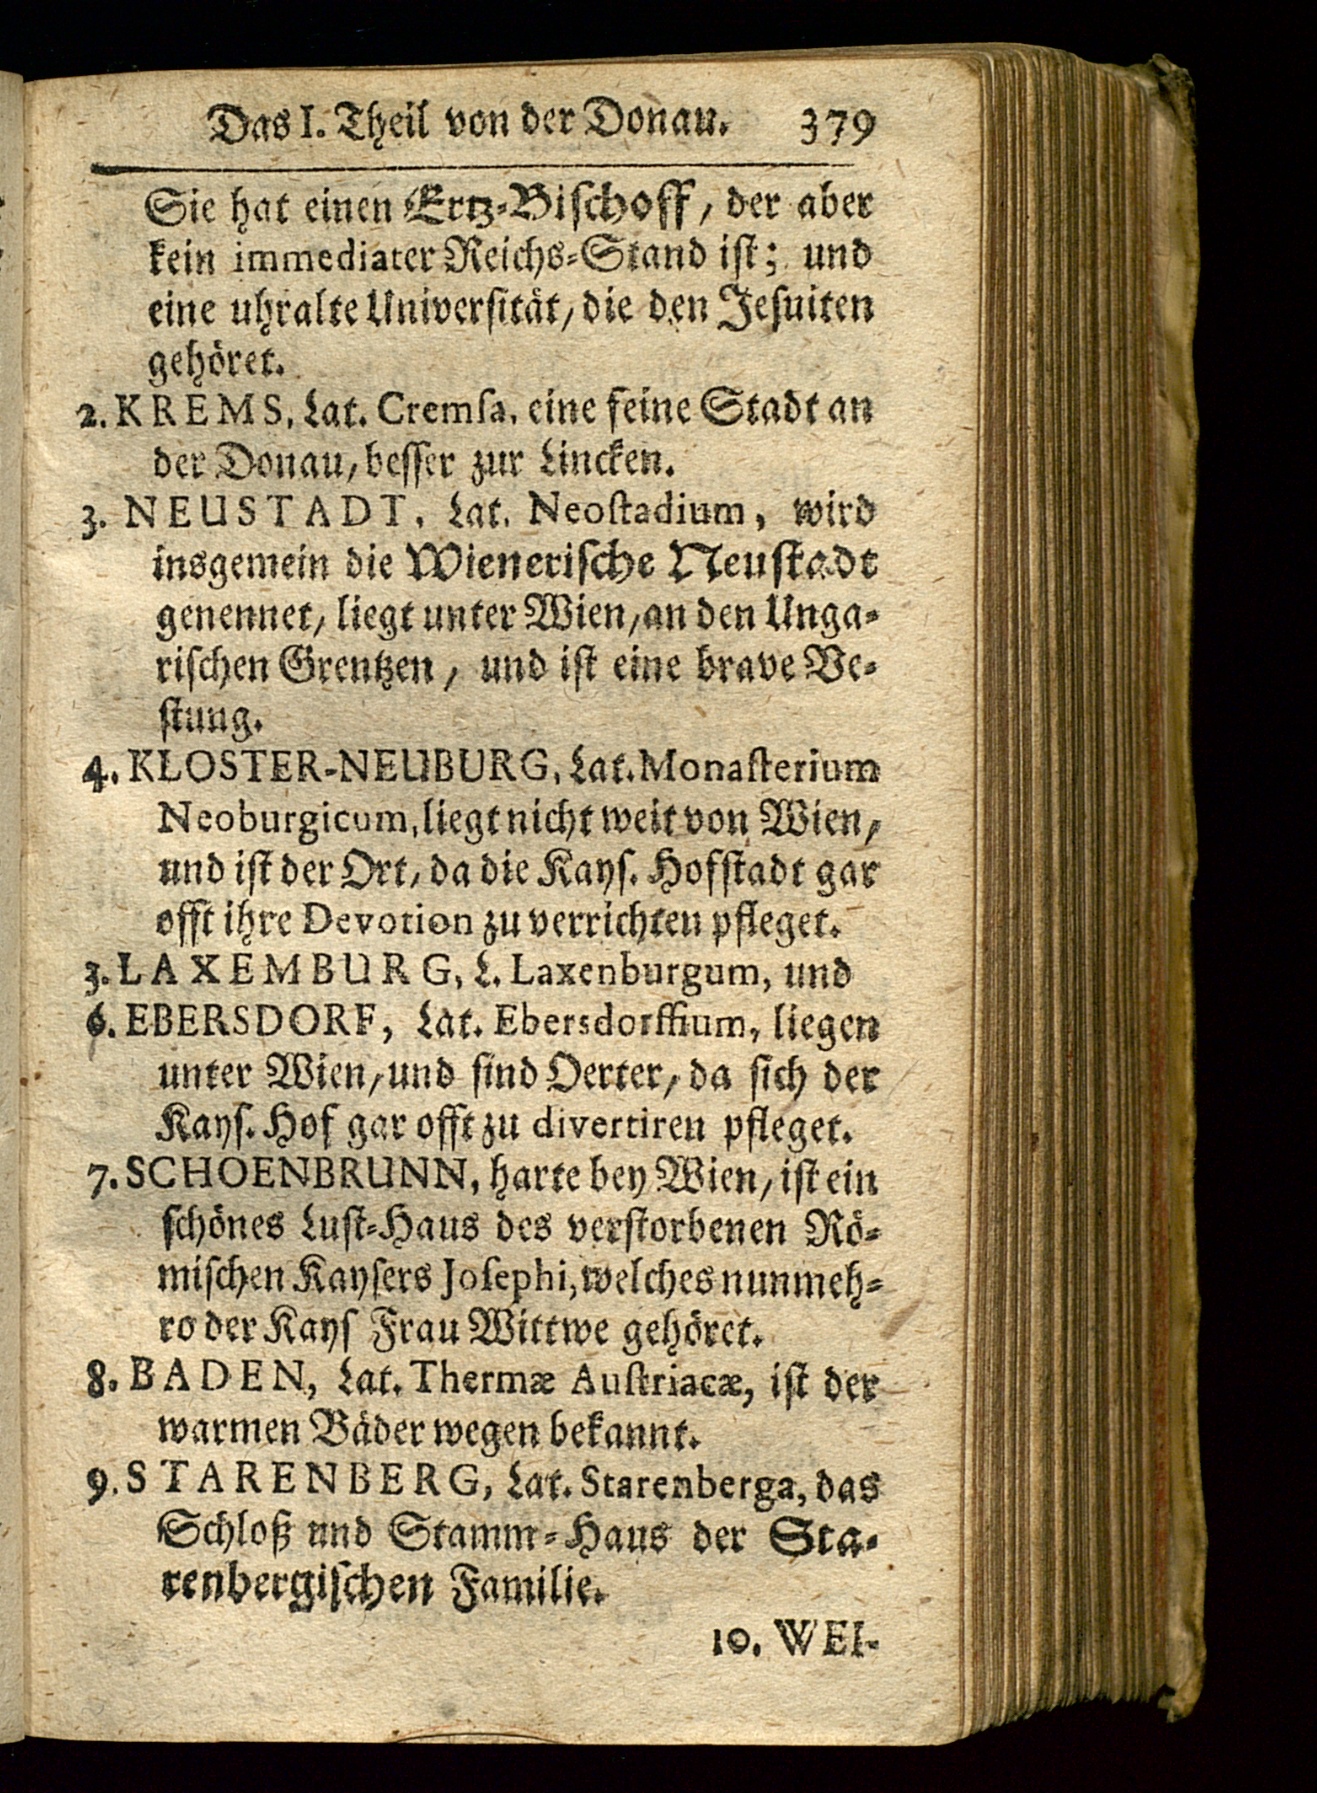 Das I. Theil von der Donau. 379
Sie hat einen Ertz-Bischoff, der aber
kein immediater Reichs-Stand ist; und
eine uhralte Universität, die den Jesuiten
gehöret.
2. KREMS, Lat. Cremsa, eine feine Stadt an
der Donau, besser zur Lincken.
3. NEUSTADT, Lat. Neostadium, wird
insgemein die Wienerische Neustadt
genennet, liegt unter Wien, an den Unga-
rischen Grentzen, und ist eine brave Ve-
stung.
4. KLOSTER-NEUBURG, Lat. Monasterium
Neoburgicum, liegt nicht weit von Wien,
und ist der Ort, da die Kays. Hofstadt gar
offt ihre Devotion zu verrichten pfleget.
3. LAXEMBURG, L. Laxenburgum, und
6. EBERSDORF, Lat. Ebersdorffium, liegen
unter Wien, und sind Oerter, da sich der
Kays. Hof gar offt zu divertiren pfleget.
7. SCHOENBRUNN, harte bey Wien, ist ein
schönes Lust-Haus des verstorbenen Rö-
mischen Kaysers Josephi, welches nunmeh-
ro der Kays Frau Wittwe gehöret.
8. BADEN, Lat. Thermæ Austriacæ, ist der
warmen Bäder wegen bekannt.
9. STARENBERG, Lat. Starenberga, das
Schloß und Stamm-Haus der Sta-
renbergischen Familie.
10. WEI-